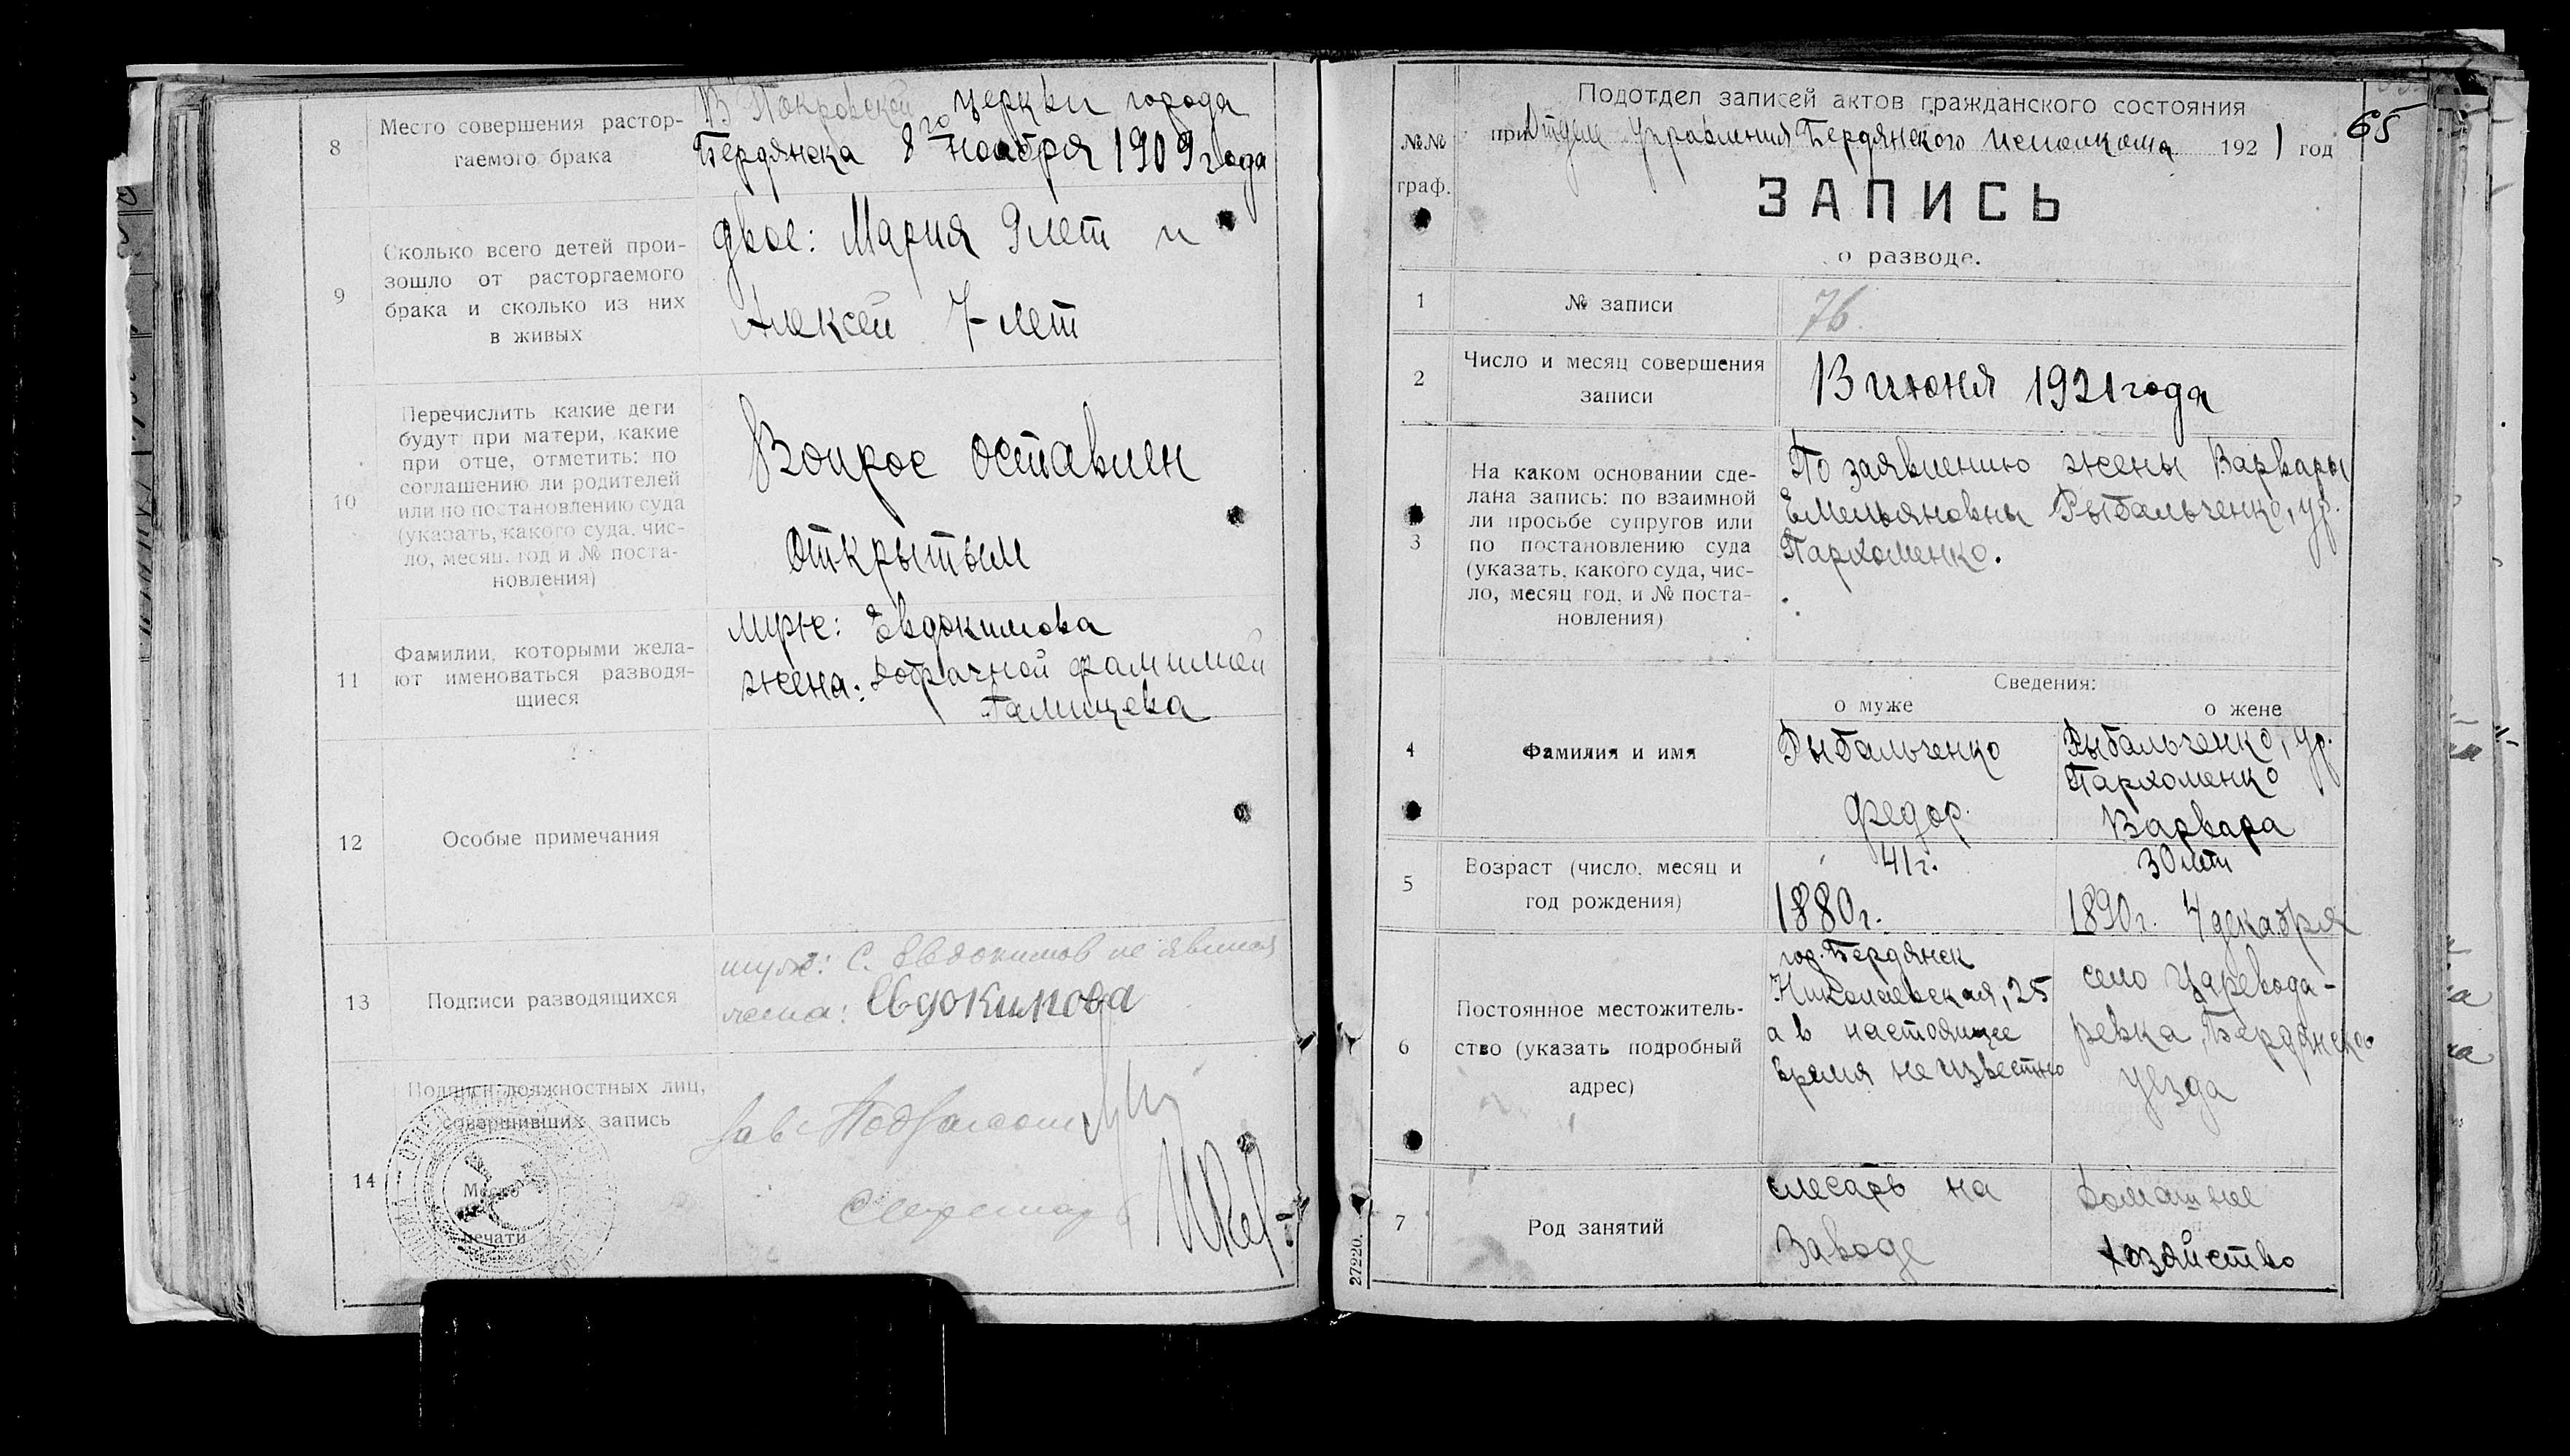 8
Место совершения растор-
гаемого брака
В Покровской церкви города
Бердянска 8го ноября 1909 года
9
Сколько всего детей прои-
зошло от расторгаемого
брака и сколько из них
в живых
двое: Мария 9 лет и
Алексей 7 лет
10
Перечислить какие дети
будут при матери, какие
при отце, отметить: по
соглашению ли родителей
или по постановлению суда
(указать, какого суда, чис-
ло, месяц, год и № поста-
новления)
Вопрос оставлен
открытым
11
Фамилии, которыми жела-
ют именоваться разводя-
щиеся
муж: Евдокимова
жена: добрачной фамилией
Галищева
12
Особые примечания
13
Подписи разводящихся
муж: С. Евдокимов не явился
жена: Евдокимова
14
Подписи должностных лиц,
совершивших запись
Место
печати
Зав Подотделом
Секретарь
65
Подотдел записей актов гражданского состояния
при Отделе Управления Бердянского исполкома 1921 год
№№
граф.
ЗАПИСЬ
о разводе.
1
№ записи
76
2
Число и месяц совершения
записи
13 июня 1921 года
3
На каком основании сде-
лана запись: по взаимной
ли просьбе супругов или
по постановлению суда
(указать, какого суда, чис-
ло, месяц год, и № поста-
новления)
По заявлению жены Варвары
Емельяновны Рыбальченко, ур.
Пархоменко.
Сведения:
о муже
о жене
4
Фамилия и имя
Рыбальченко
Федор.
Рыбальченко, ур.
Пархоменко
Варвара
5
Возраст (число, месяц и
год рождения)
41 г.
1880 г.
30 лет
1890 г. 4 декабря
6
Постоянное местожитель-
ство (указать подробный
адрес)
гор. Бердянск
Николаевская, 25
а в настоящее
время неизвестно
село Царевода-
ревка, Бердянского
уезда
7
Род занятий
слесарь на
заводе
домашнее
хозяйство
27220.